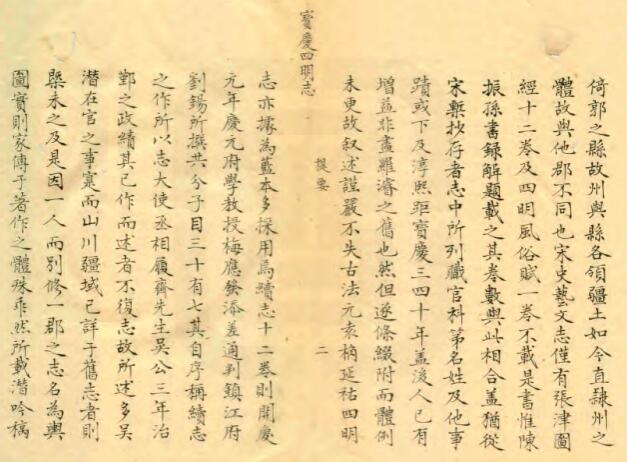 倚郭之縣故州與縣各領疆土如今直隸州之
體故與他郡不同也宋史藝文志僅有張津圖
經十二卷及四明風俗賦一卷不載是書惟陳
振孫書録解題載之其卷數與此相合蓋猶從
宋槧抄存者志中所列職官科第名姓及他事
蹟或下及淳熙距寶慶三四十年蓋後人已有
增益非盡羅濬之舊也然但逐條綴附而體例
未更故叙述謹嚴不失古法元袁桷延祐四明
寶慶四明志
提要
二
志亦據為藍本多採用焉續志十二卷則開慶
元年慶元府學教授梅應發添差通判鎮江府
劉錫所撰共分子目三十有七其自序稱續志
之作所以志大使丞相履齋先生吳公三年治
鄞之政績其已作而述者不復志故所述多吳
潛在官之事實而山川疆域已詳于舊志者則
槩未之及是因一人而別修一郡之志名為輿
圖實則家傳于著作之體殊乖然所載潛吟稿